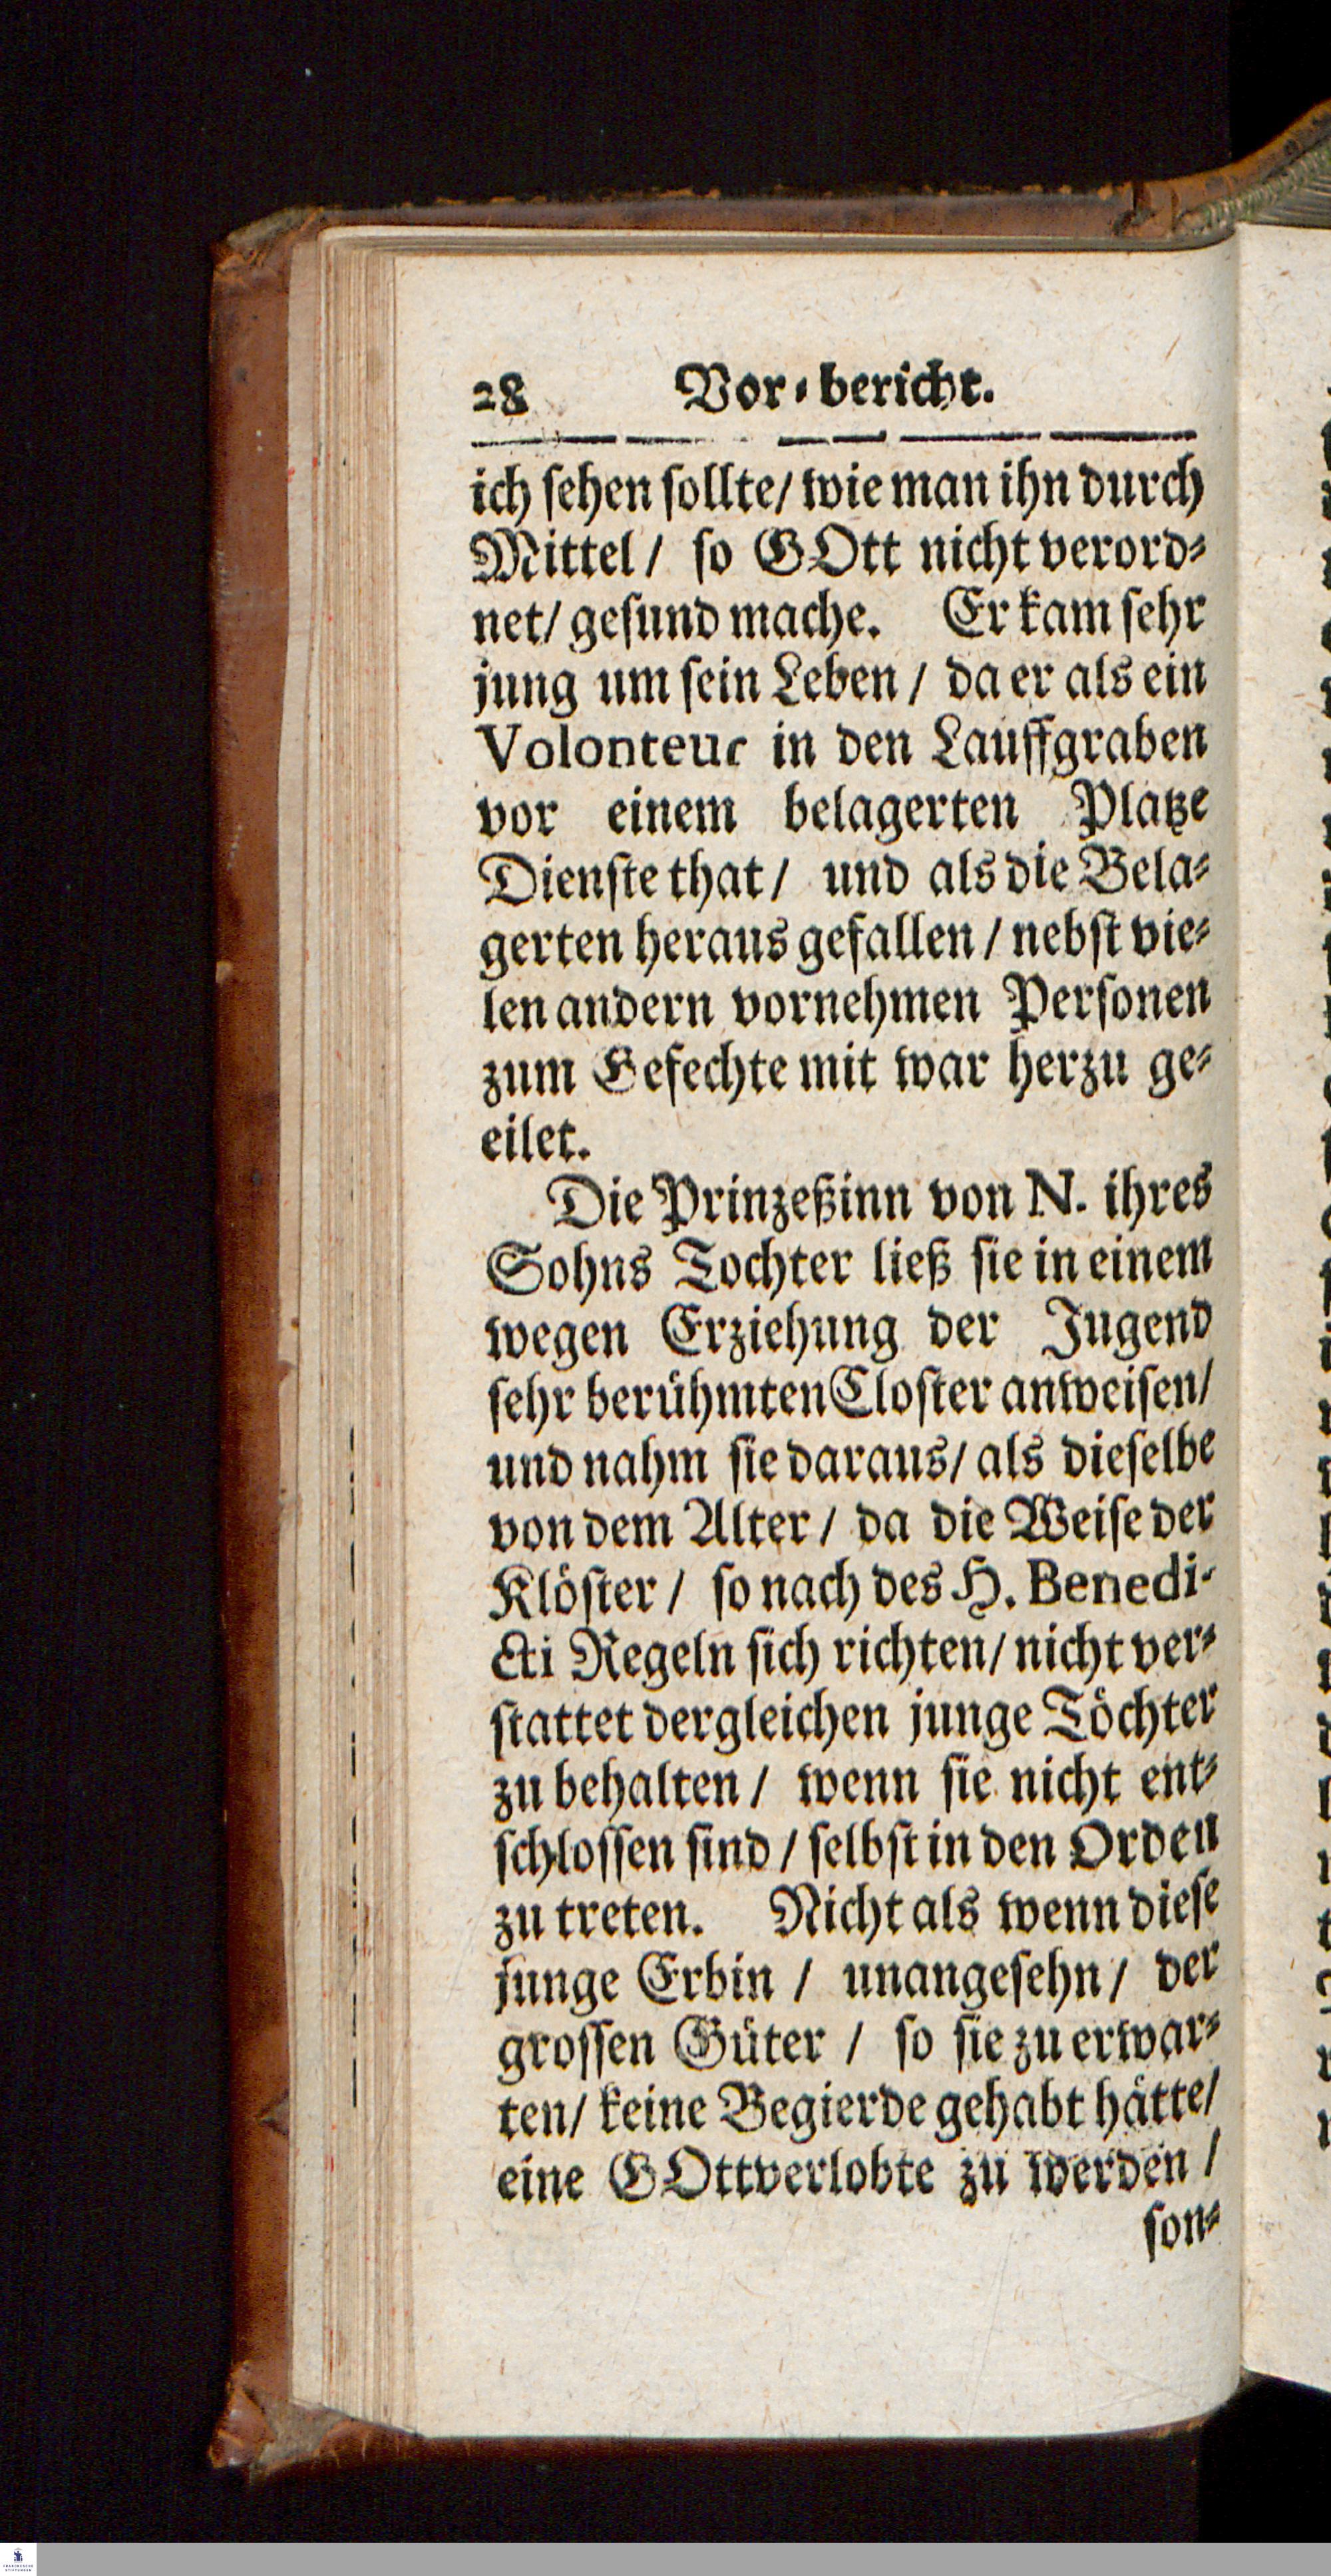 28 Vor⸗bericht.
ich ſehen ſollte/ wie man ihn durch
Mittel/ ſo GOtt nicht verord⸗
net/ geſund mache. Er kam ſehr
jung um ſein Leben / da er als ein
Volonteur in den Lauffgraben
vor einem belagerten Platze
Dienſte that/ und als die Bela⸗
gerten heraus gefallen / nebſt vie⸗
len andern vornehmen Perſonen
zum Gefechte mit war herzu ge⸗
eilet.
Die Prinzeßinn von N. ihres
Sohns Tochter ließ ſie in einem
wegen Erziehung der Jugend
ſehr berühmten Cloſter anweiſen/
und nahm ſie daraus/ als dieſelbe
von dem Alter / da die Weiſe der
Klöſter / ſo nach des H. Benedi-
cti Regeln ſich richten/ nicht ver⸗
ſtattet dergleichen junge Töchter
zu behalten / wenn ſie nicht ent⸗
ſchloſſen ſind / ſelbſt in den Orden
zu treten. Nicht als wenn dieſe
junge Erbin / unangeſehn/ der
groſſen Güter / ſo ſie zu erwar⸗
ten/ keine Begierde gehabt hätte/
eine GOttverlobte zu werden /
ſon⸗